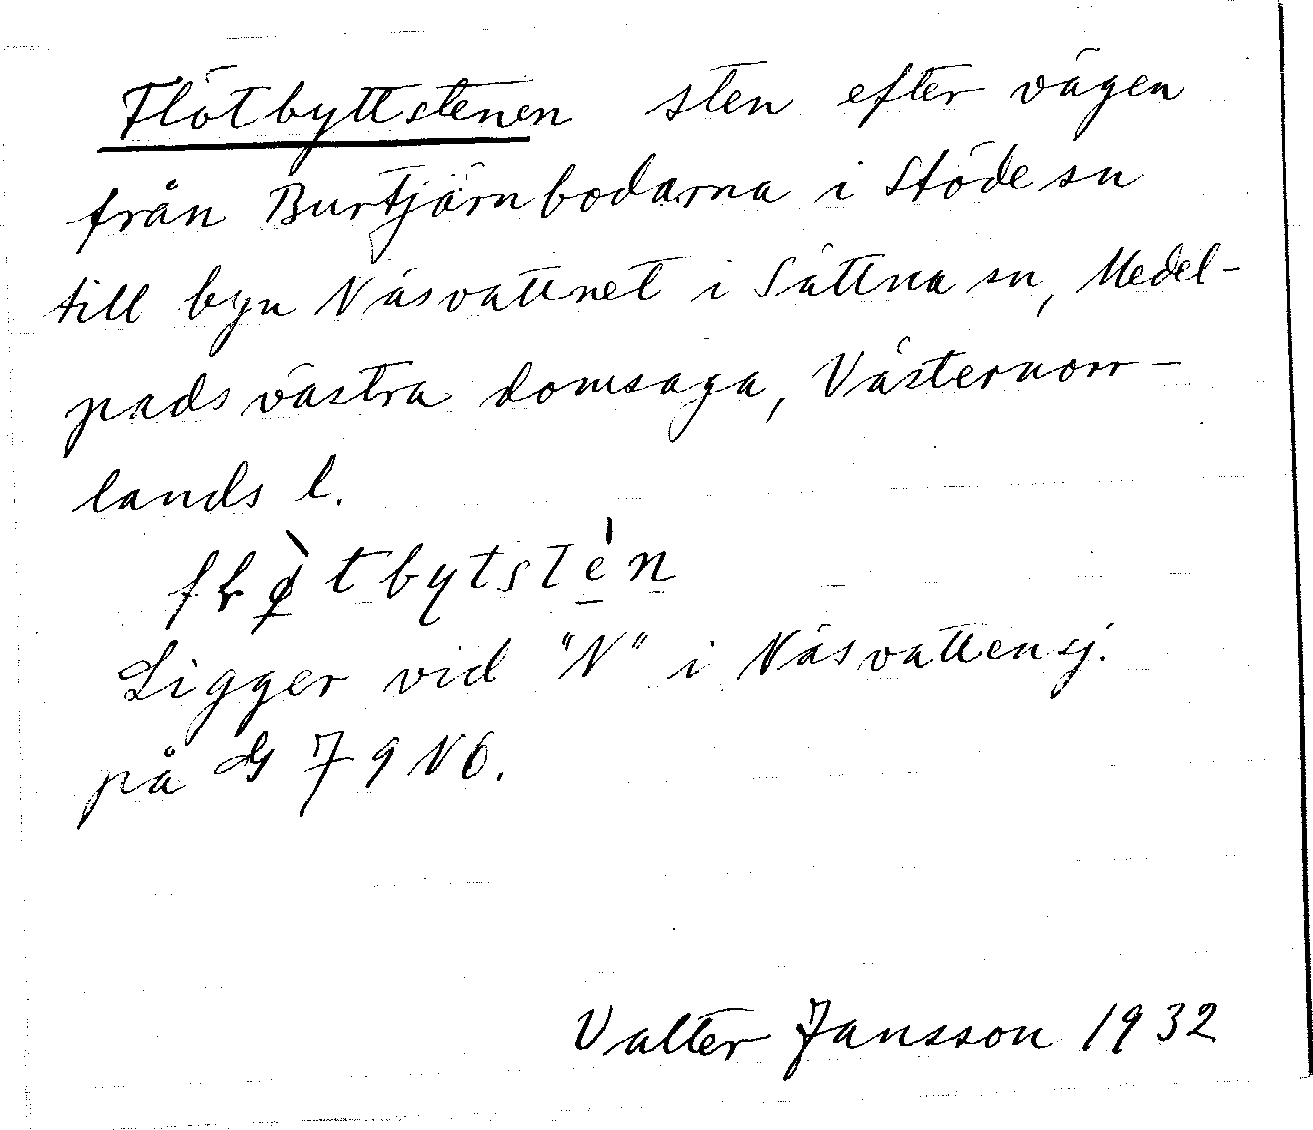 Flötbyttstenen sten efter vägen
från Burtjärnbodarna i Stöde sn
till byn Näsvattnet i Sättna sn, Medel-
pads västra domsaga, Västernorr-
lands l.
fłø̀tbytste̍n
Ligger vid "N" i Näsvattensj.
på 79 NO.
Valter Jansson 1932